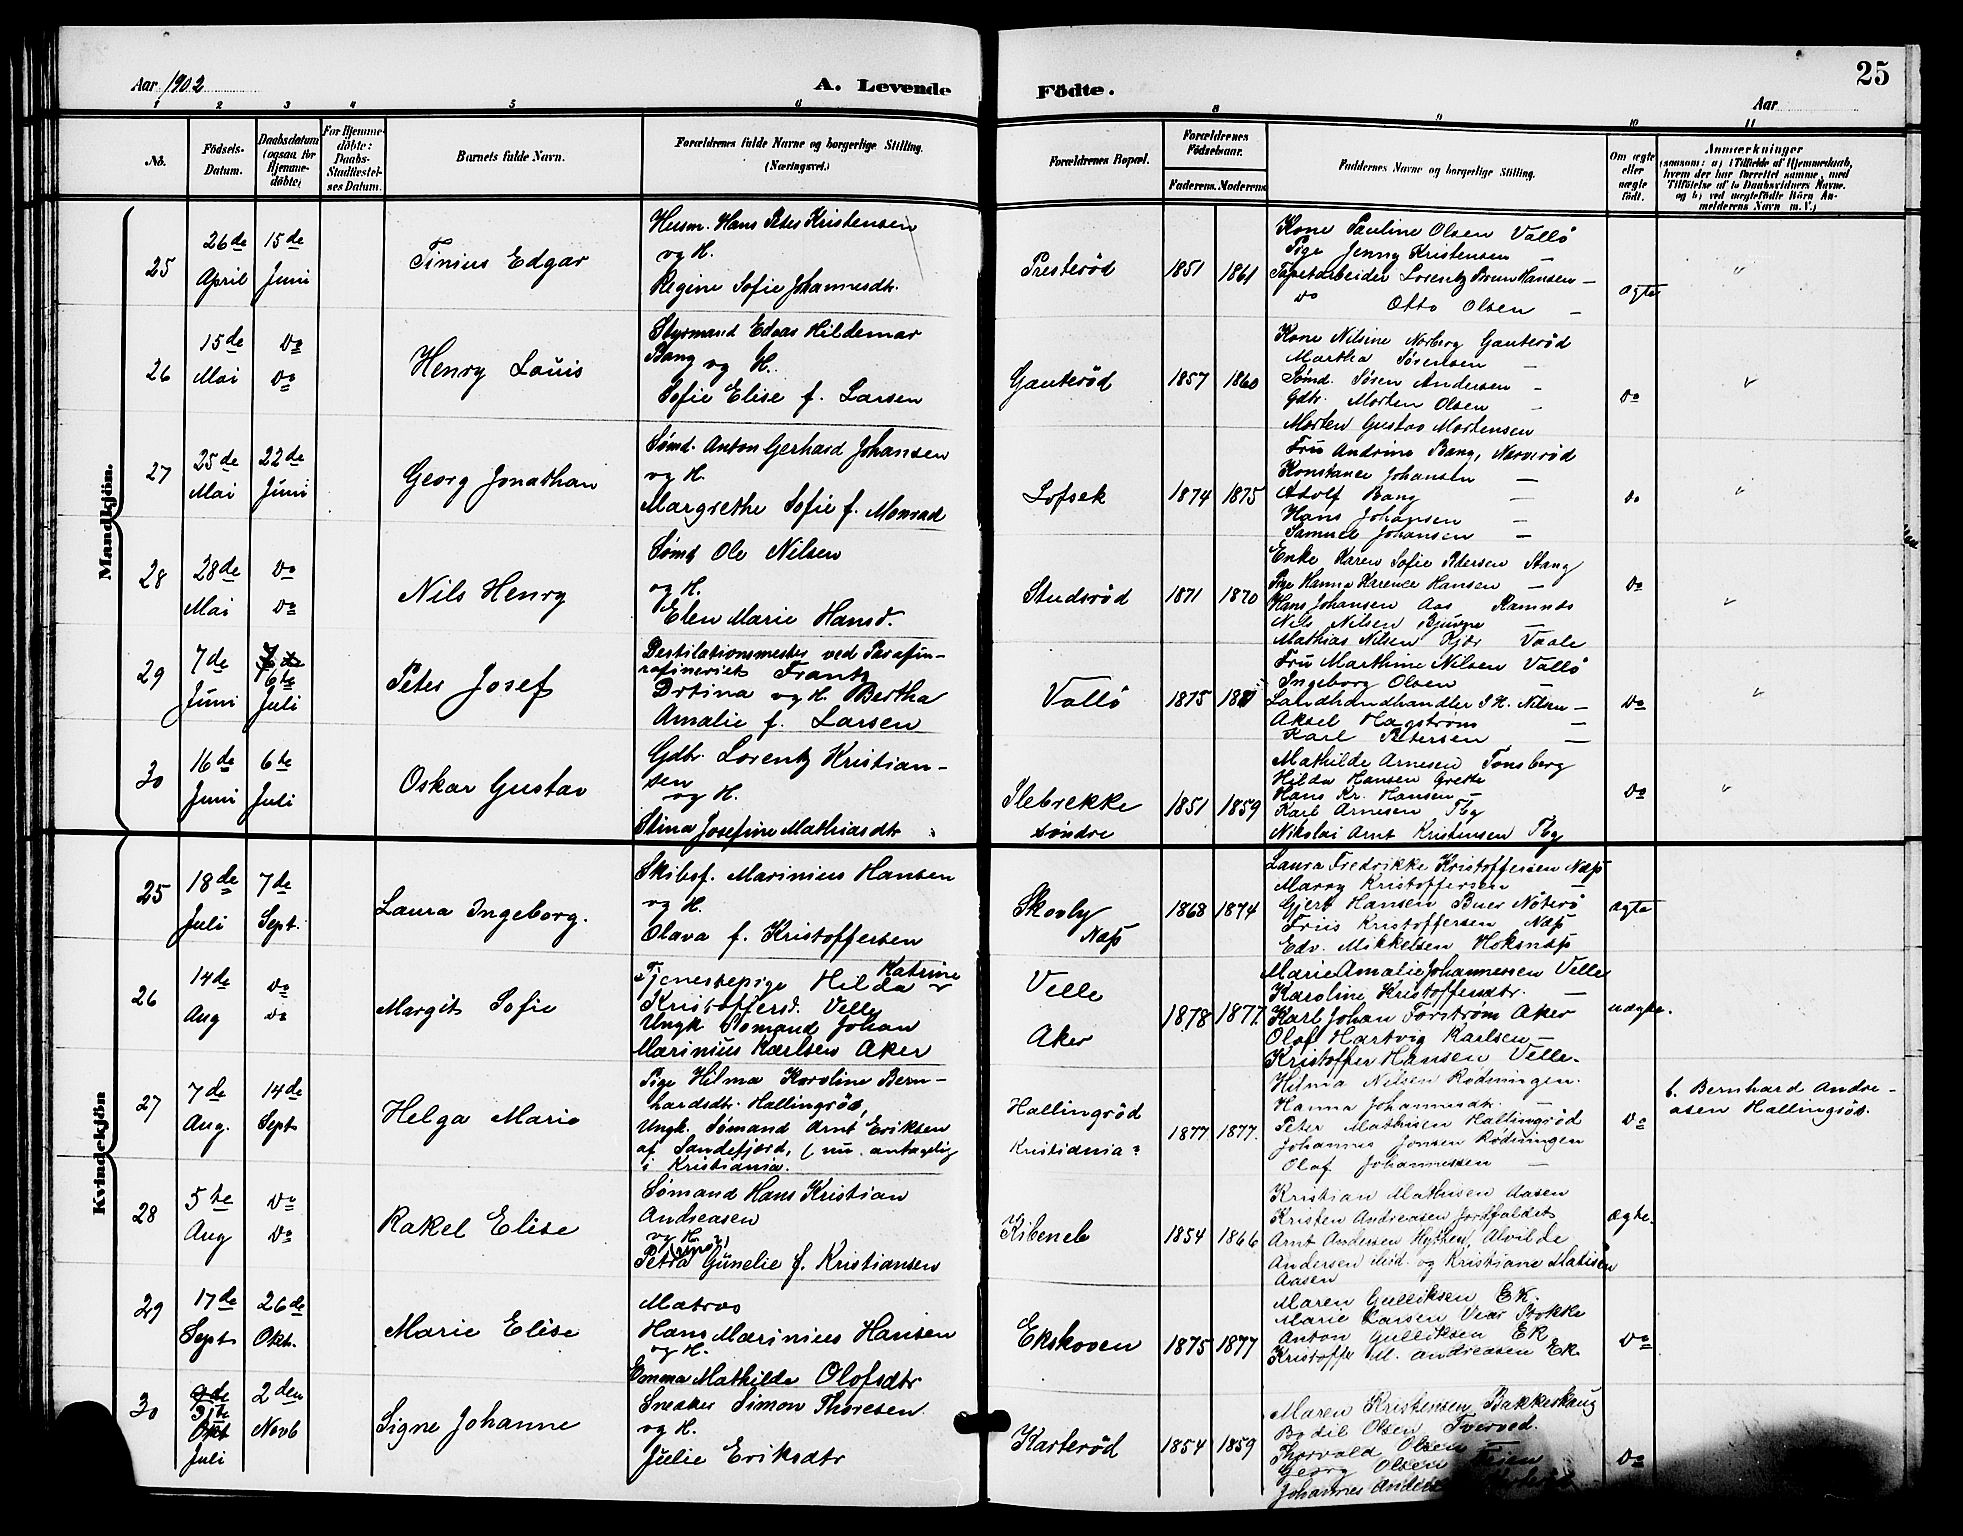 Aar 1902
A. Levende
Födte.
Aar
25
1 2 3 4 5 6
8 9 10 11
No.
Födsels-Datum.
Daabsdatum (ogsaa for Hjemmedöbte)
For Hjemmedöbte: Daabs-Stadfæstelses Datum.
Barnets fulde Navn.
Forældrenes fulde Navne og borgerlige Stilling.
(Næringsvei.)
Forældrenes Bopæl.
Forældrenes Födselsaar.
Faderens. Moderens
Faddernes Navne og borgerlige Stilling.
Om ægte eller uægte födt.
Anmærkninger
(saasom: a) i Tilfælde af Hjemmedaab,
hvem der har forrettet samme, med
Tilföielse af to Daabsvidners Navne.
og b) ved uægtefödte Börn An-
melderens Navn m. V.)
Mandkjön.
25
26de April
15de Juni
Tinius Edgar
Husm. Hans Peter Kristensen
og H.
Regine Sofie Johannesdtr.
Presterød
1851
1861
Kone Pauline Olsen Vallö
Pige Jenny Kristensen —
Lorentz Brun Hansen —
do Otto Olsen —
ægte
26
15de Mai
do do
Henry Louis
Styrmand Edvas Hildemar
Bang og H.
Sofie Elise f. Larsen
Gauterød
1857
1860
Kone Nilsine Norberg Gauterød
Martha Sørensen —
Sømd. Søren Andersen —
Gdbr. Morten Olsen —
Morten Gustav Mortensen
do
27
25de Mai
22de Juni
Georg Jonathan
Sømd. Anton Gerhard Johansen
og H.
Margrethe Sofie f. Monrad
Lofsek
1874
1875
Fru Andrine Bang, Narverød
Konstance Johansen —
Adolf Bang —
Hans Johansen —
Samuel Johansen —
do
28
28de Mai
do do
Nils Henry
Sømd Ole Nilsen
og H.
Elen Marie Hansd.
Studsrød
1871
1870
Enke Karen Sofie Petersen Stang
Pige Hanna Karence Hansen —
Hans Johansen Aas Ramnes
Nils Nilsen Bjuerge —
Mathias Nilsen Kjær Vaale
do
29
7de Juni
6te Juli
Peter Josef
Destilationsmester ved Parafin-
rafineriet Frantz
Drtina og H. Bertha
Amalie f. Larsen
Vallö
1875
Fru Marthine Nilsen Vallö
Ingeborg Olsen
Landhandhandler S H. Nilsen —
Aksel Hagstrøm —
Karl Petersen —
do
30
16de Juni
6te Juli
Oskar Gustav
Gdbr. Lorentz Kristian-
sen
og H.
Stina Josefine Mathiasdtr
Slebrekke
søndre
1851
1859
Mathilde Arnesen Tønsberg
Hilda Hansen Grette
Hans Kr. Hansen —
Karl Arnesen Tbg
Nikolai Arnt Kristensen Tbg
do
Kvindekjön
25
18de Juli
7de Sept.
Laura Ingeborg.
Skibsf. Marinius Hansen
og H.
Olava f. Kristoffersen
Skovly
Næss
1868
1874
Laura Fredrikke Kristoffersen Næss
Marry Kristoffersen —
Gjert Hansen Buer Nøterø
Friis Kristoffersen Næss
Edv. Mikkelsen Hoksnæss
ægte
26
14de Aug
do do
Margit Sofie
Tjenestepige Hilda Katrine
Kristoffersd. Velle
Ungk Sömand Johan
Marinius Karlsen Aker
Velle
Aker
1878
1877.
Marie Amalie Johannessen Velle
Karoline Kristoffersdtr. —
Karl Johan Forstrøm Aker
Olof Hartvig Karlsen —
Kristoffer Hansen Velle.
uægte.
27
7de Aug.
14de Sept
Helga Marie
Pige Hilma Karoline Bern-
hardsdtr. Hallingrød,
Ungk. Sømand Arnt Eriksen
af Sandefjord, (nu antagelig
i Kristiania.
Hallingrød
Kristiania?
1877
1877.
Hilma Nilsen Rødningen.
Hanna Johannesdtr. —
Peter Mathisen Hallingrød
Johannes Jonsen Rødningen
Olaf Johannessen —
do
b. Bernhard Andre-
asen Hallingrød.
28
5te Aug
do do
Rakel Elise
Sømand Hans Kristian
Andreasen
og H.
Petra Gunelie f. Kristiansen
Kibeneb
1854
1866
Kristian Mathisen Aasen
Kristen Andreasen Jordfaldet
Arnt Andersen Hytten, Alvilde
Andersen ibid. og Kristiane Matisen
Aasen
Ægte.
29
17de Sept
26de Okt.
Marie Elise
Matros
Hans Marinius Hansen
og H.
Emma Mathilde Olofsdtr
Ekskoven
1875
1877
Maren Gulliksen Ek.
Marie Larsen Vear Stokke
Anton Gulliksen Ek
Kristoffer M. Andreasen Ek
do
30
Okt
Juli
2den Novb
Signe Johanne
Sneker Simon Thoresen
og H.
Julie Eriksdtr
Karterød
1854
1859
Maren Kristensen Bakkeskaug
Bodil Olsen Tverved.
Thorvald Olsen —
Georg Olsen
Johannes
do